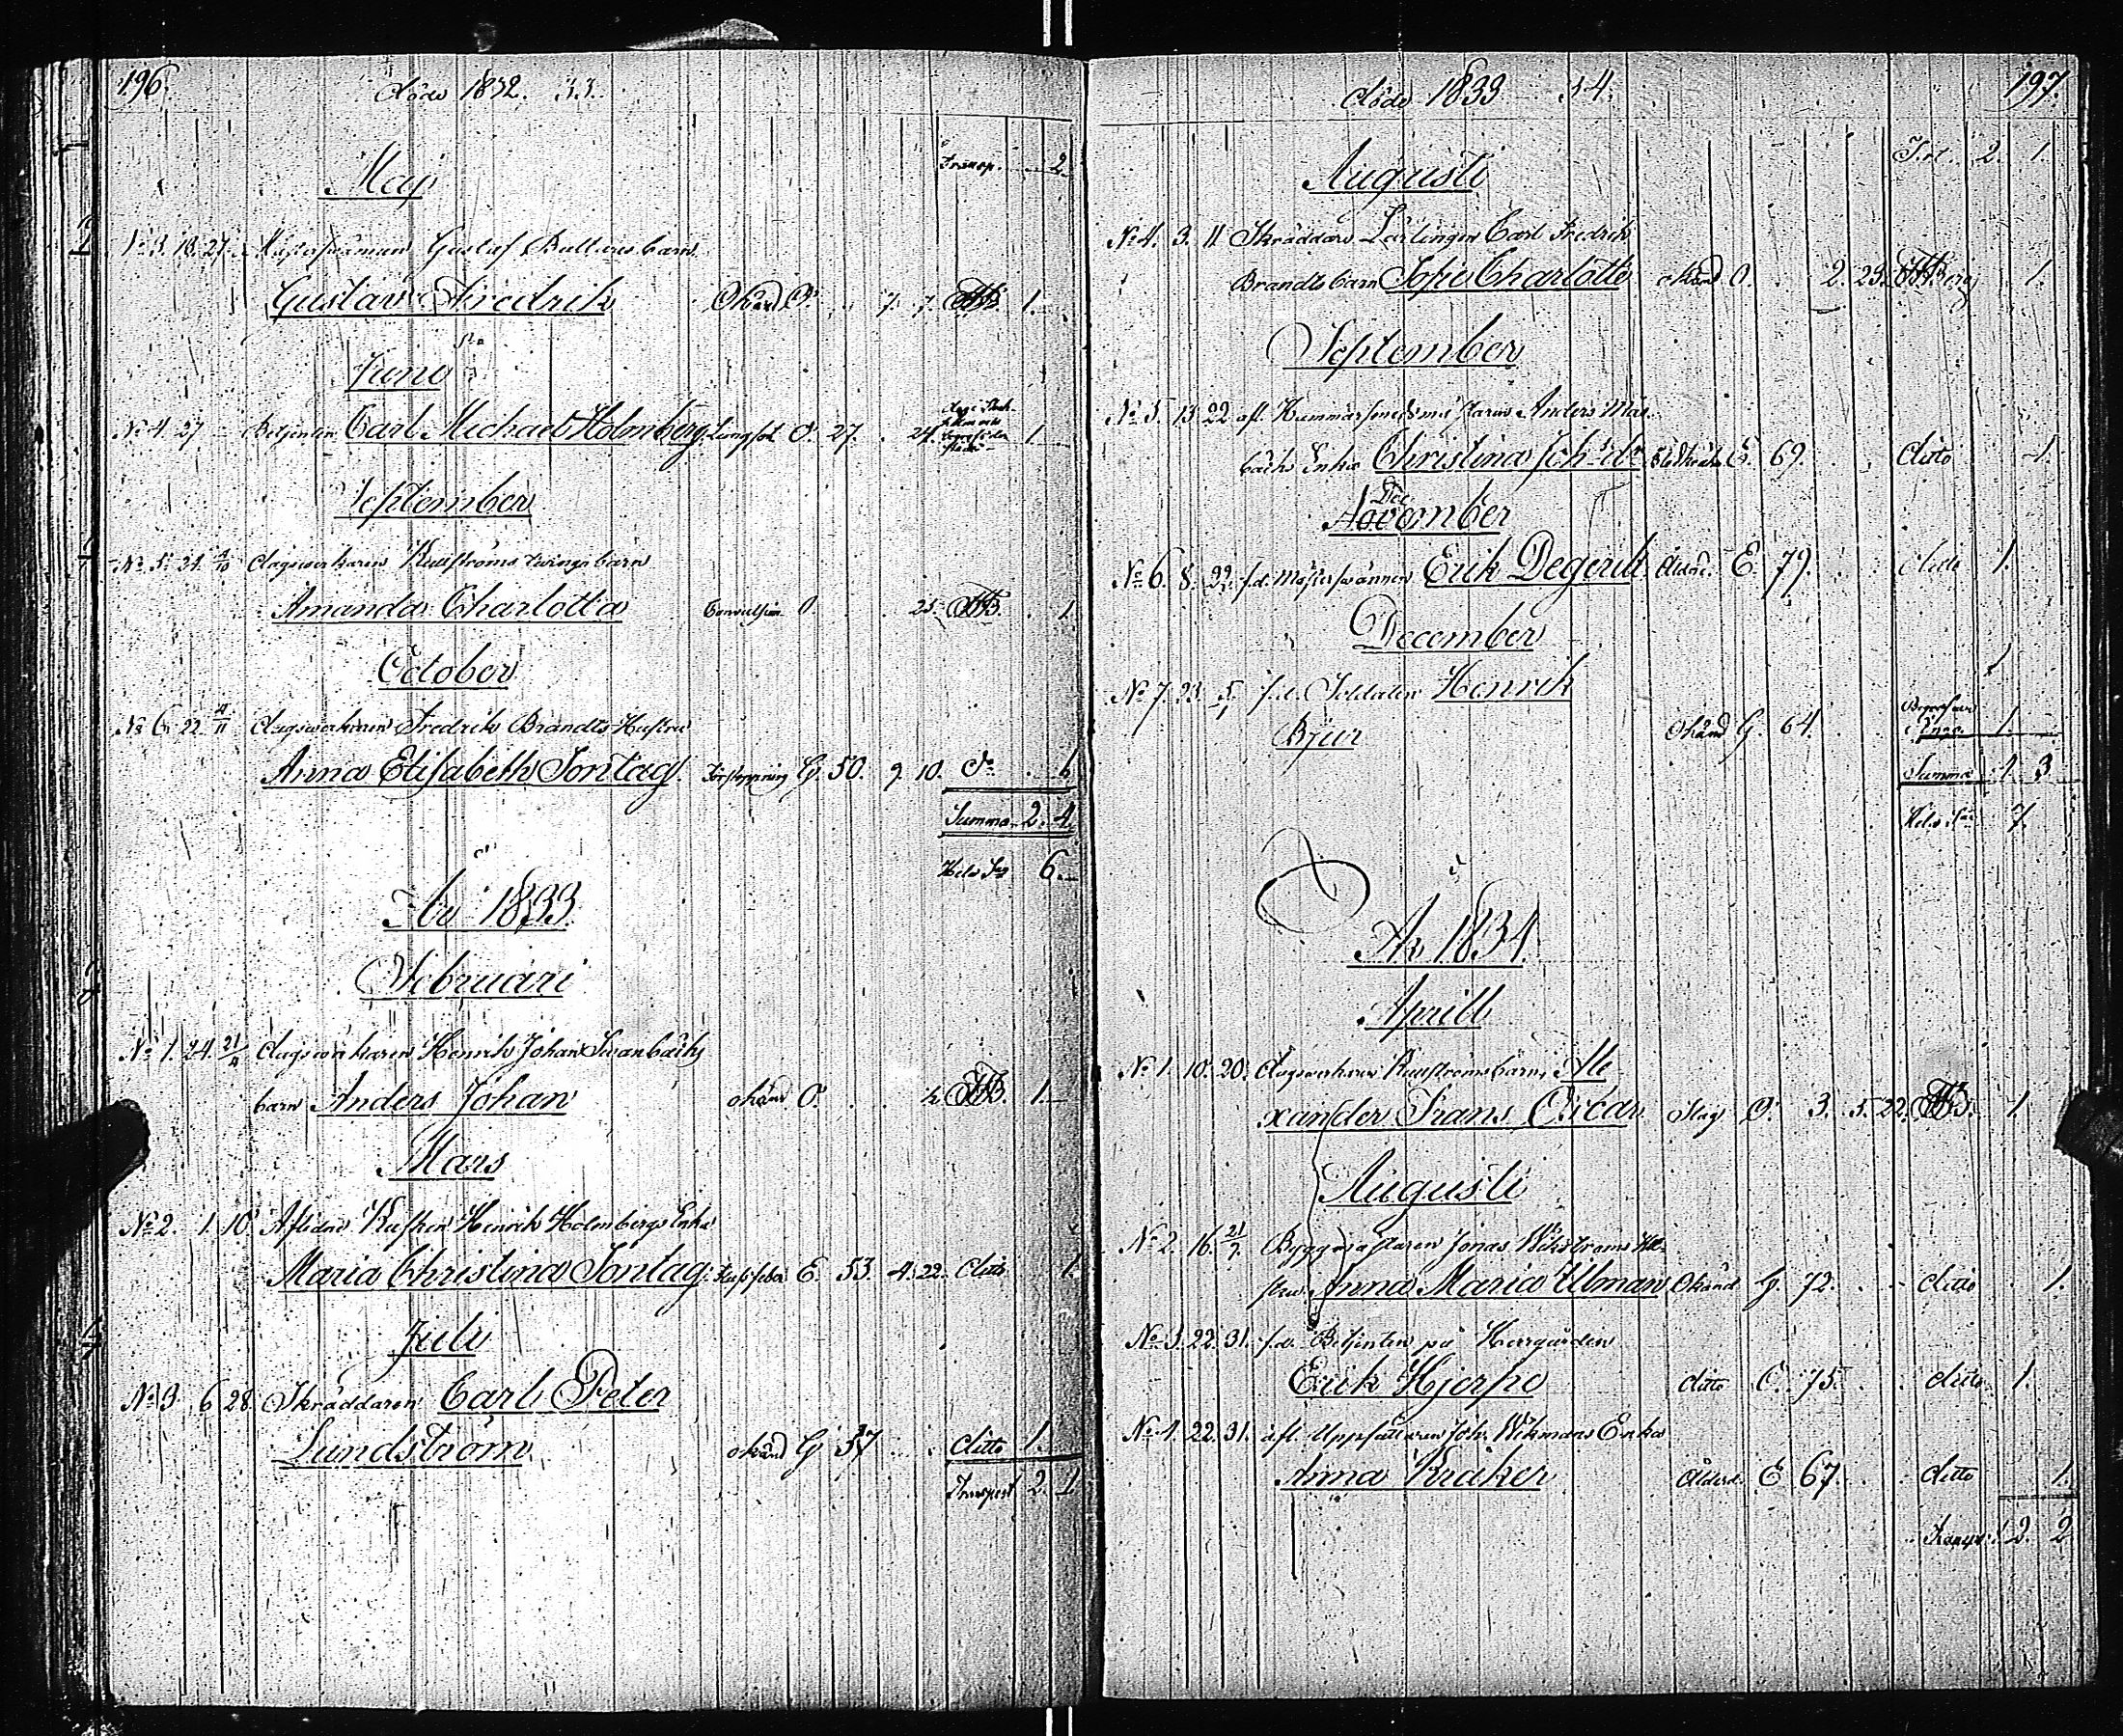 196.
döde 1832. 33.
Transp. 2
Maj
No 3. 18. 27. Gustaf barn
Gustav Fredrik Okänd O. 7. 7. 1.
Juni
No 4. 27 Betjenten Carl Michael Holmberg. Lungsot O. 27. 24. 1
September
No 5. 24. 4/10 dagsverkaren Rullströms tvinge barn
Amanda Charlotta Convulsion O. 25. 1
October
No 6. 22. 4/11 dagsverkaren Fredrik Brandts Hustru
Anna Elisabeth Sontag. Förstoppning G. 50. 9. 10. do 1.
Summa 2. 4.
Hela Sua 6.
År 1833.
Februari
No 1. 24. dagsverkaren Henrik Johan Svanbäcks
barn Anders Johan okänd O. ½ 1.
Mars
No 2. 1. 10 Aflidne Kusken Henrik Holmbergs Enka
Maria Christina Sontag. E. 53. 4. 22. ditto 1.
Juli
No 3. 6 28. Skräddaren Carl Peter
Lundström okänd G 37 ditto 1.
Transport 2. 1.
döde 1833 34.
197.
2. 1.
Augusti
No 4. 3. 11 Skräddare Lärlingen Carl Fredrik
Brandts barn Sofie Charlotte okänd O. 2. 23. 1.
September
No 5. 13. 22 afl. Hammarsmedsmästaren Anders Mas-
backs Enka Christina Joh:dr G. 69. ditto 1.
Dec
November
No 6. 8. 22 f.d. Mästersvännen Erik Degerik Ålderd. E. 79. ditto 1.
December
No 7. 23. 5/1 f.d. Soldaten Henrik
Bjur Okänd G. 64. 1.
Summa 4. 3
Hela Sua 7.
År 1834.
Aprill
No 1. 10. 20. dagsverkaren Rullströms barn, Ale-
xander Frans Oscar Slag O. 3. 5. 22. 1.
Augusti
No 2. 16. 21/7. Byggmästaren Jonas Wikströms Hu-
stru Anna Maria Ulman Okänd G. 72. ditto 1.
No 3. 22. 31. f.d. Betjenten på Herrgården
Erik Hjerpe ditto O. 75. ditto 1.
No 4. 22. 31. afl. Uppsättaren Joh. Wikmans Enka
Anna Kråker Ålderd. E 67. ditto 1.
Transp. 2. 2